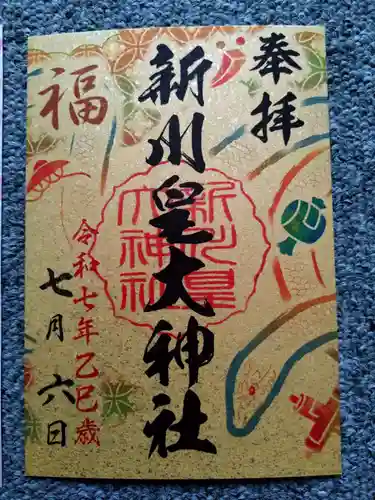 奉拝
新川皇大神社
福
令和七年乙巳歳
七月六日
新川皇
大神社